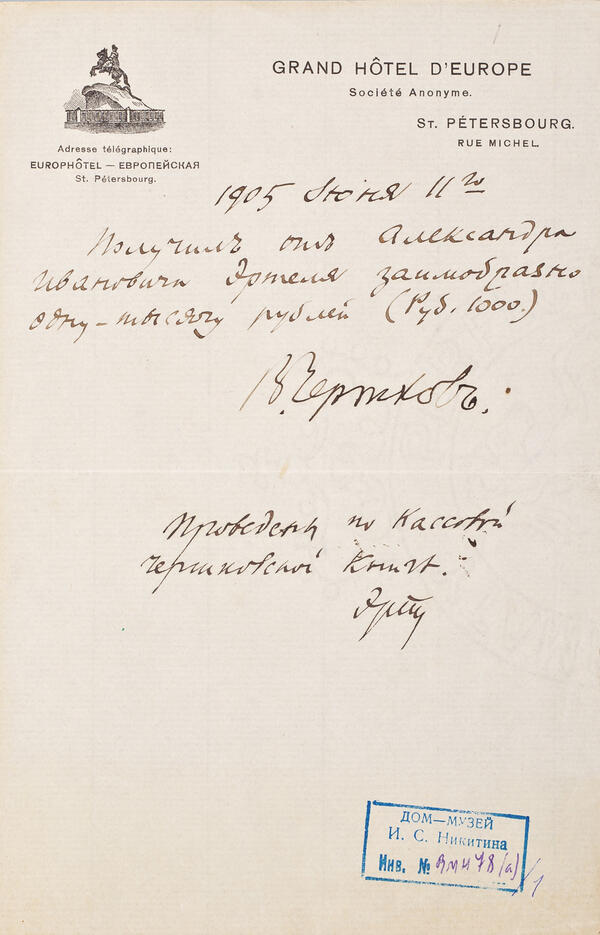 GRAND HÔTEL D'EUROPE
Société Anonyme.
St. PÉTERSBOURG.
RUE MICHEL.
Adresse télégraphique:
EUROPHÔTEL — ЕВРОПЕЙСКАЯ
St. Pétersbourg.
1905 Iюня 11го
Получилъ отъ Александра
Ивановича Эртеля заимобразно
одну-тысячу рублей (Руб. 1000.)
В. Чертковъ.
Проведены по Кассовой
чертковской Книгѣ.
ДОМ—МУЗЕЙ
И. С. Никитина
Инв. №